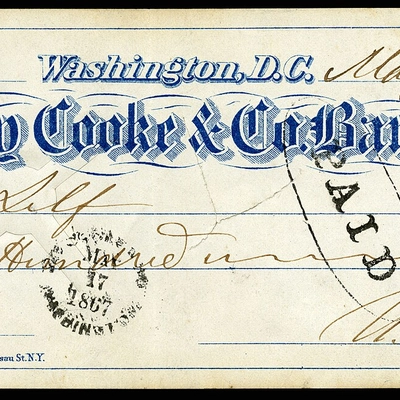 Washington, D.C. Ma
y Cooke & Co. Ban
Self
Hundred
PAID
MAY
17
1867
WASHINGTON
sau St. N.Y.